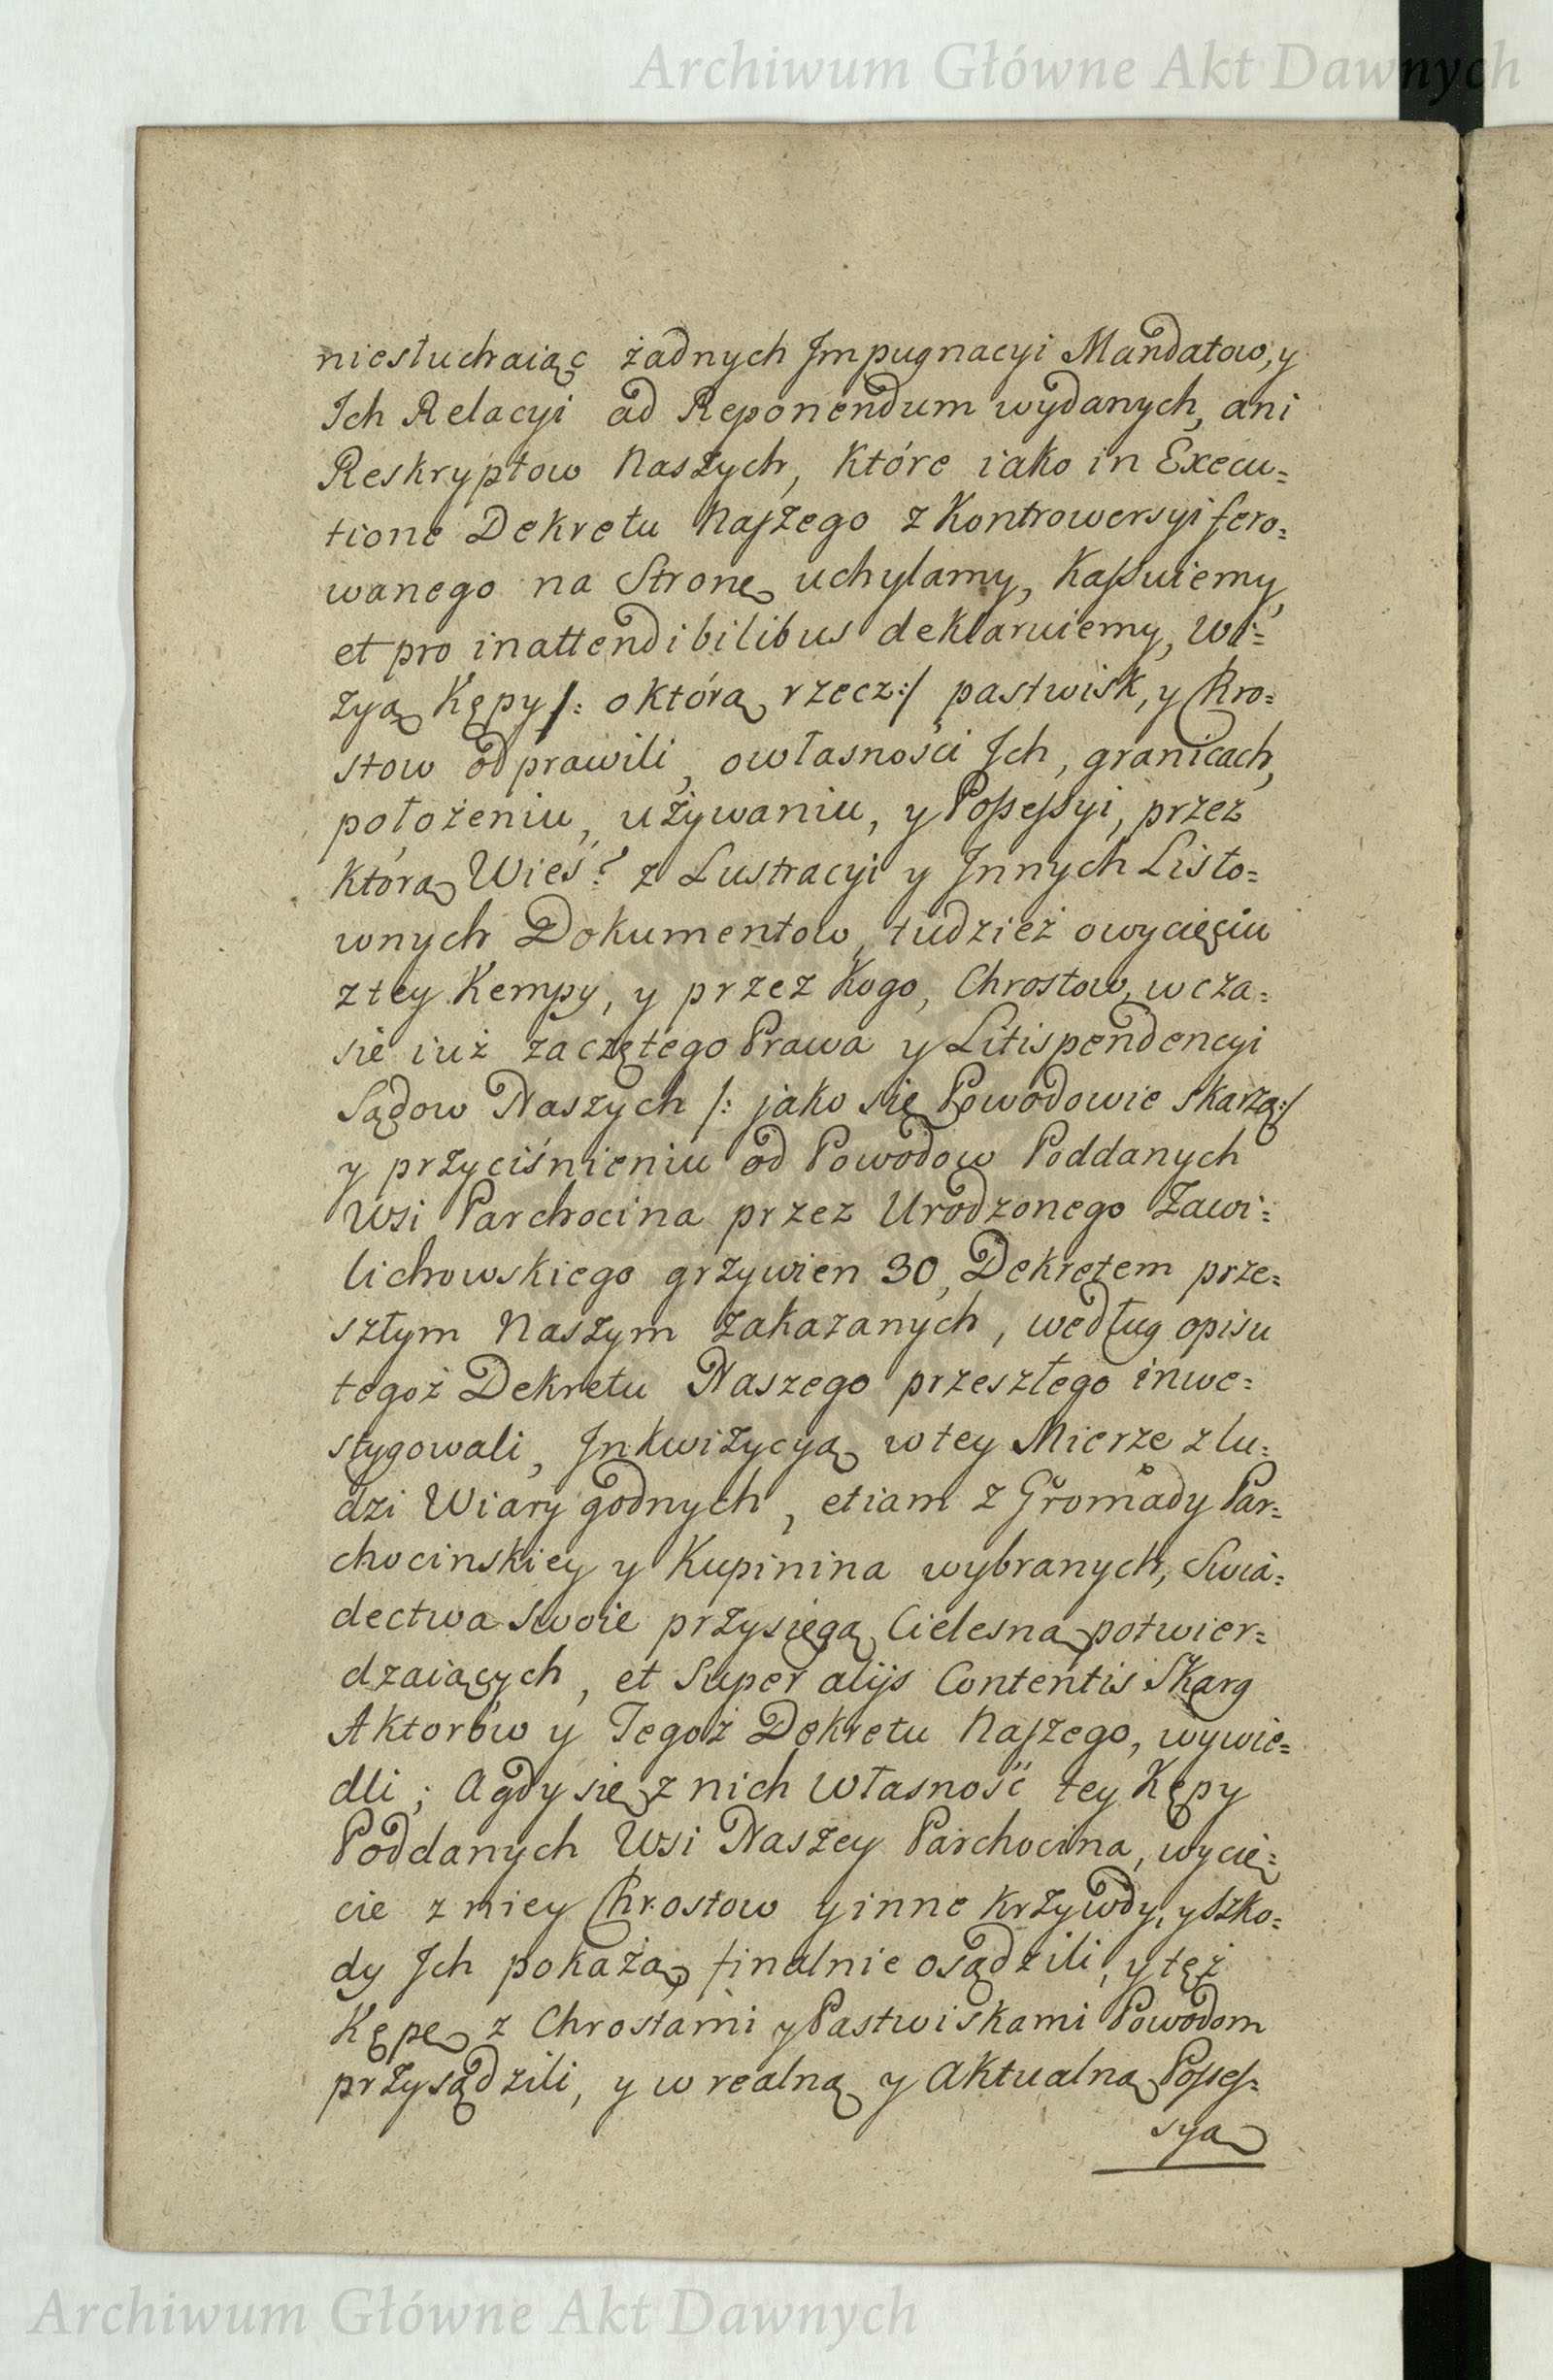 Archiwum Główne Akt Dawnych
niesłuchaiąc żadnych Impugnacyi Mandatow, y
Ich Relacyi ad Reponendum wydanych, ani
Reskryptow Naszych, które iako in Execu=
tione Dekretu Naszego z Kontrowersyi fero=
wanego na Stronę uchylamy, Kassuiemy,
et pro inattendibilibus deklaruiemy, Wi=
zyą Kępy /: o którą rzecz :/ pastwisk, y Chro=
stow odprawili, o własności Ich, granicach,
położeniu, używaniu, y Possessyi, przez
którą Wieś? z Lustracyi y Innych Listo=
wnych Dokumentow, tudzież o wycięciu
z tey Kempy, y przez Kogo, Chrostow, w cza=
sie iuż zaczętego Prawa y Litispendencyi
Sądow Naszych /: jako się Powodowie skarzą :/
y przyciśnieniu od Powodow Poddanych
Wsi Parchocina przez Urodzonego Zawi=
lichowskiego grzywien 30, Dekretem prze=
szłym Naszym zakazanych, według opisu
tegoż Dekretu Naszego przeszłego inwe=
stygowali, Inkwizycyą w tey Mierze z lu=
dzi Wiary godnych, etiam z Gromady Par=
chocinskiey y Kupinina wybranych, Swia=
dectwa swoie przysięgą Cielesną potwier=
dzaiących, et Super alijs Contentis Skarg
Aktorów y Tegoż Dekretu Naszego, wywie=
dli; A gdy się z nich Własność tey Kępy
Poddanych Wsi Naszey Parchocina, wycię=
cie z niey Chrostow y inne krzywdy, y szko=
dy Ich pokażą, finalnie osądzili, y tęż
Kępę z Chrostami y Pastwiskami Powodom
przysądzili, y w realną y Aktualną Posses=
syą
Archiwum Główne Akt Dawnych